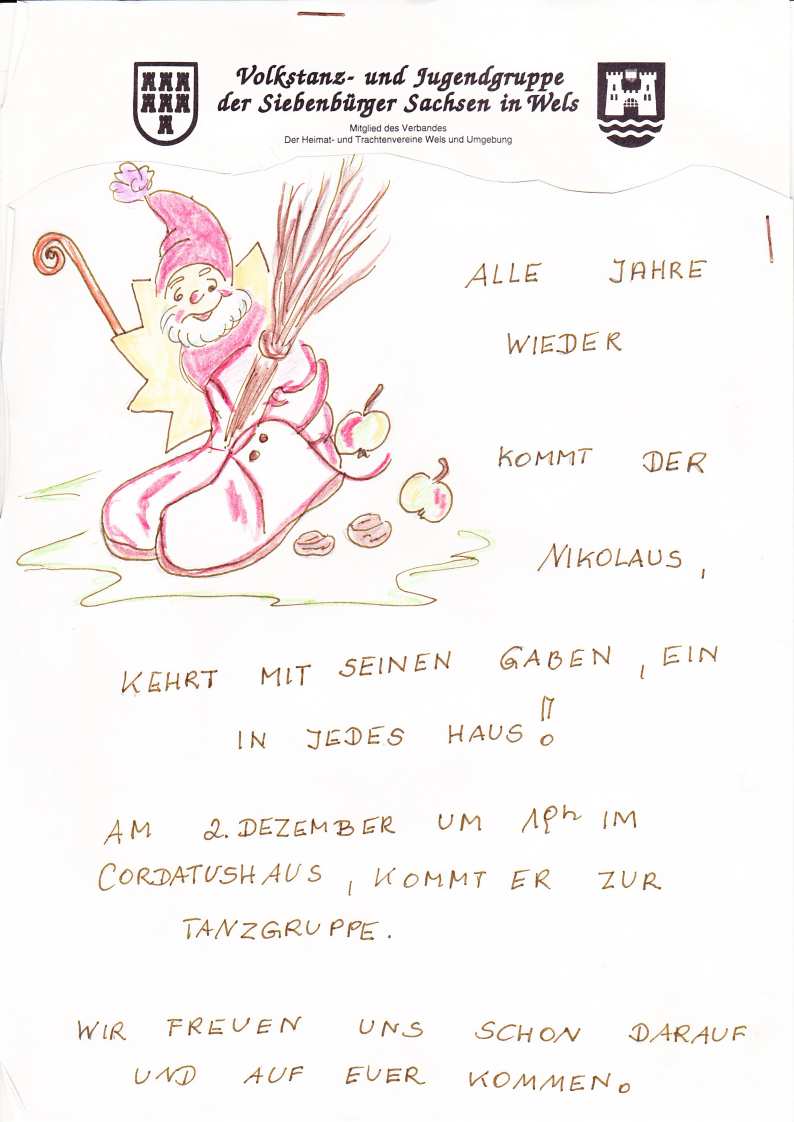 Volkstanz- und Jugendgruppe
der Siebenbürger Sachsen in Wels
Mitglied des Verbandes
Der Heimat- und Trachtenvereine Wels und Umgebung
ALLE JAHRE
WIEDER
KOMMT DER
NIKOLAUS,
KEHRT MIT SEINEN GABEN, EIN
IN JEDES HAUS!
AM 2. DEZEMBER UM 19h IM
CORDATUSHAUS, KOMMT ER ZUR
TANZGRUPPE.
WIR FREUEN UNS SCHON DARAUF
UND AUF EUER KOMMEN.